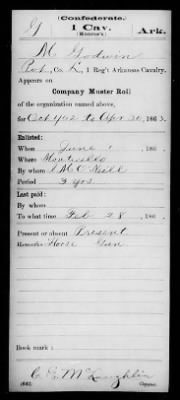 (Confederate.)
G 1 Cav. Ark.
(Monroe's)
M Godwin
Pvt, Co. K, 1 Reg't Arkansas Cavalry.
Appears on
Company Muster Roll
of the organization named above,
for Oct 1862 to Apr 30, 1863.
Enlisted:
When June 1, 186 .
Where Monticello
By whom
Period 3 yrs
Last paid:
By whom
To what time Feb 28, 186 .
Present or absent Present
Remarks: Horse Gun
Book mark:
C. E. McLaughlin
(642) Copyist.